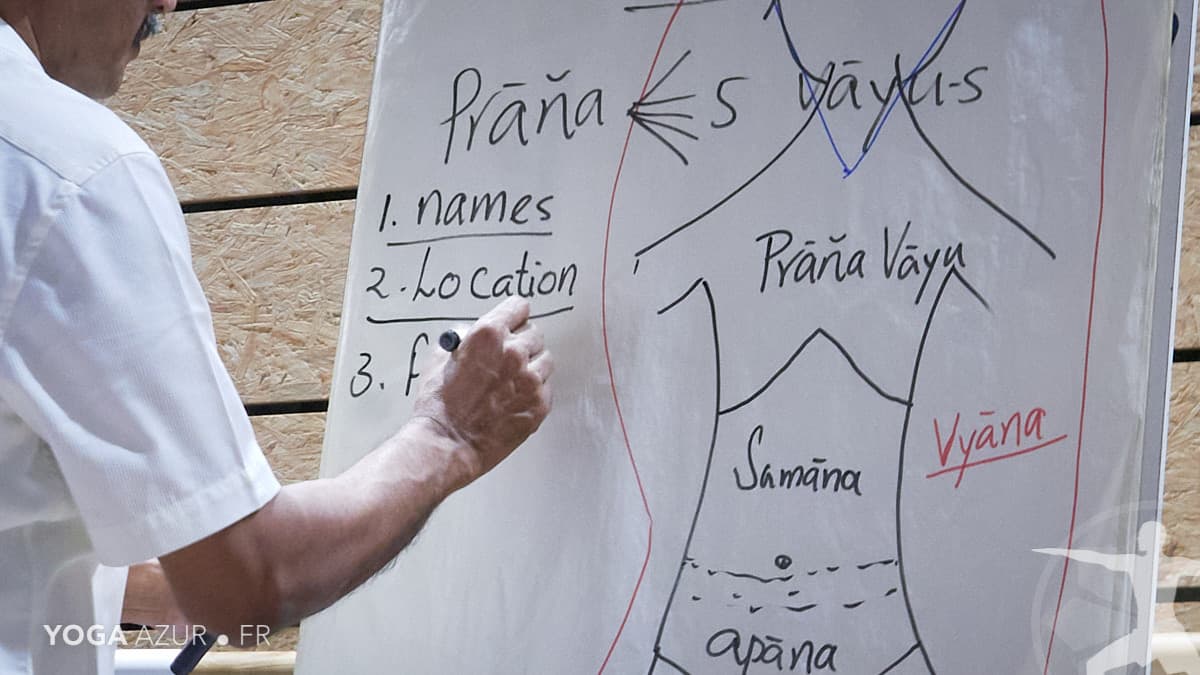 Prāňa < 5 Vāyu-s
1. names
2. Location
3. f
Prāňa Vāyu
Samāna
Vyāna
apāna
YOGA AZUR.FR